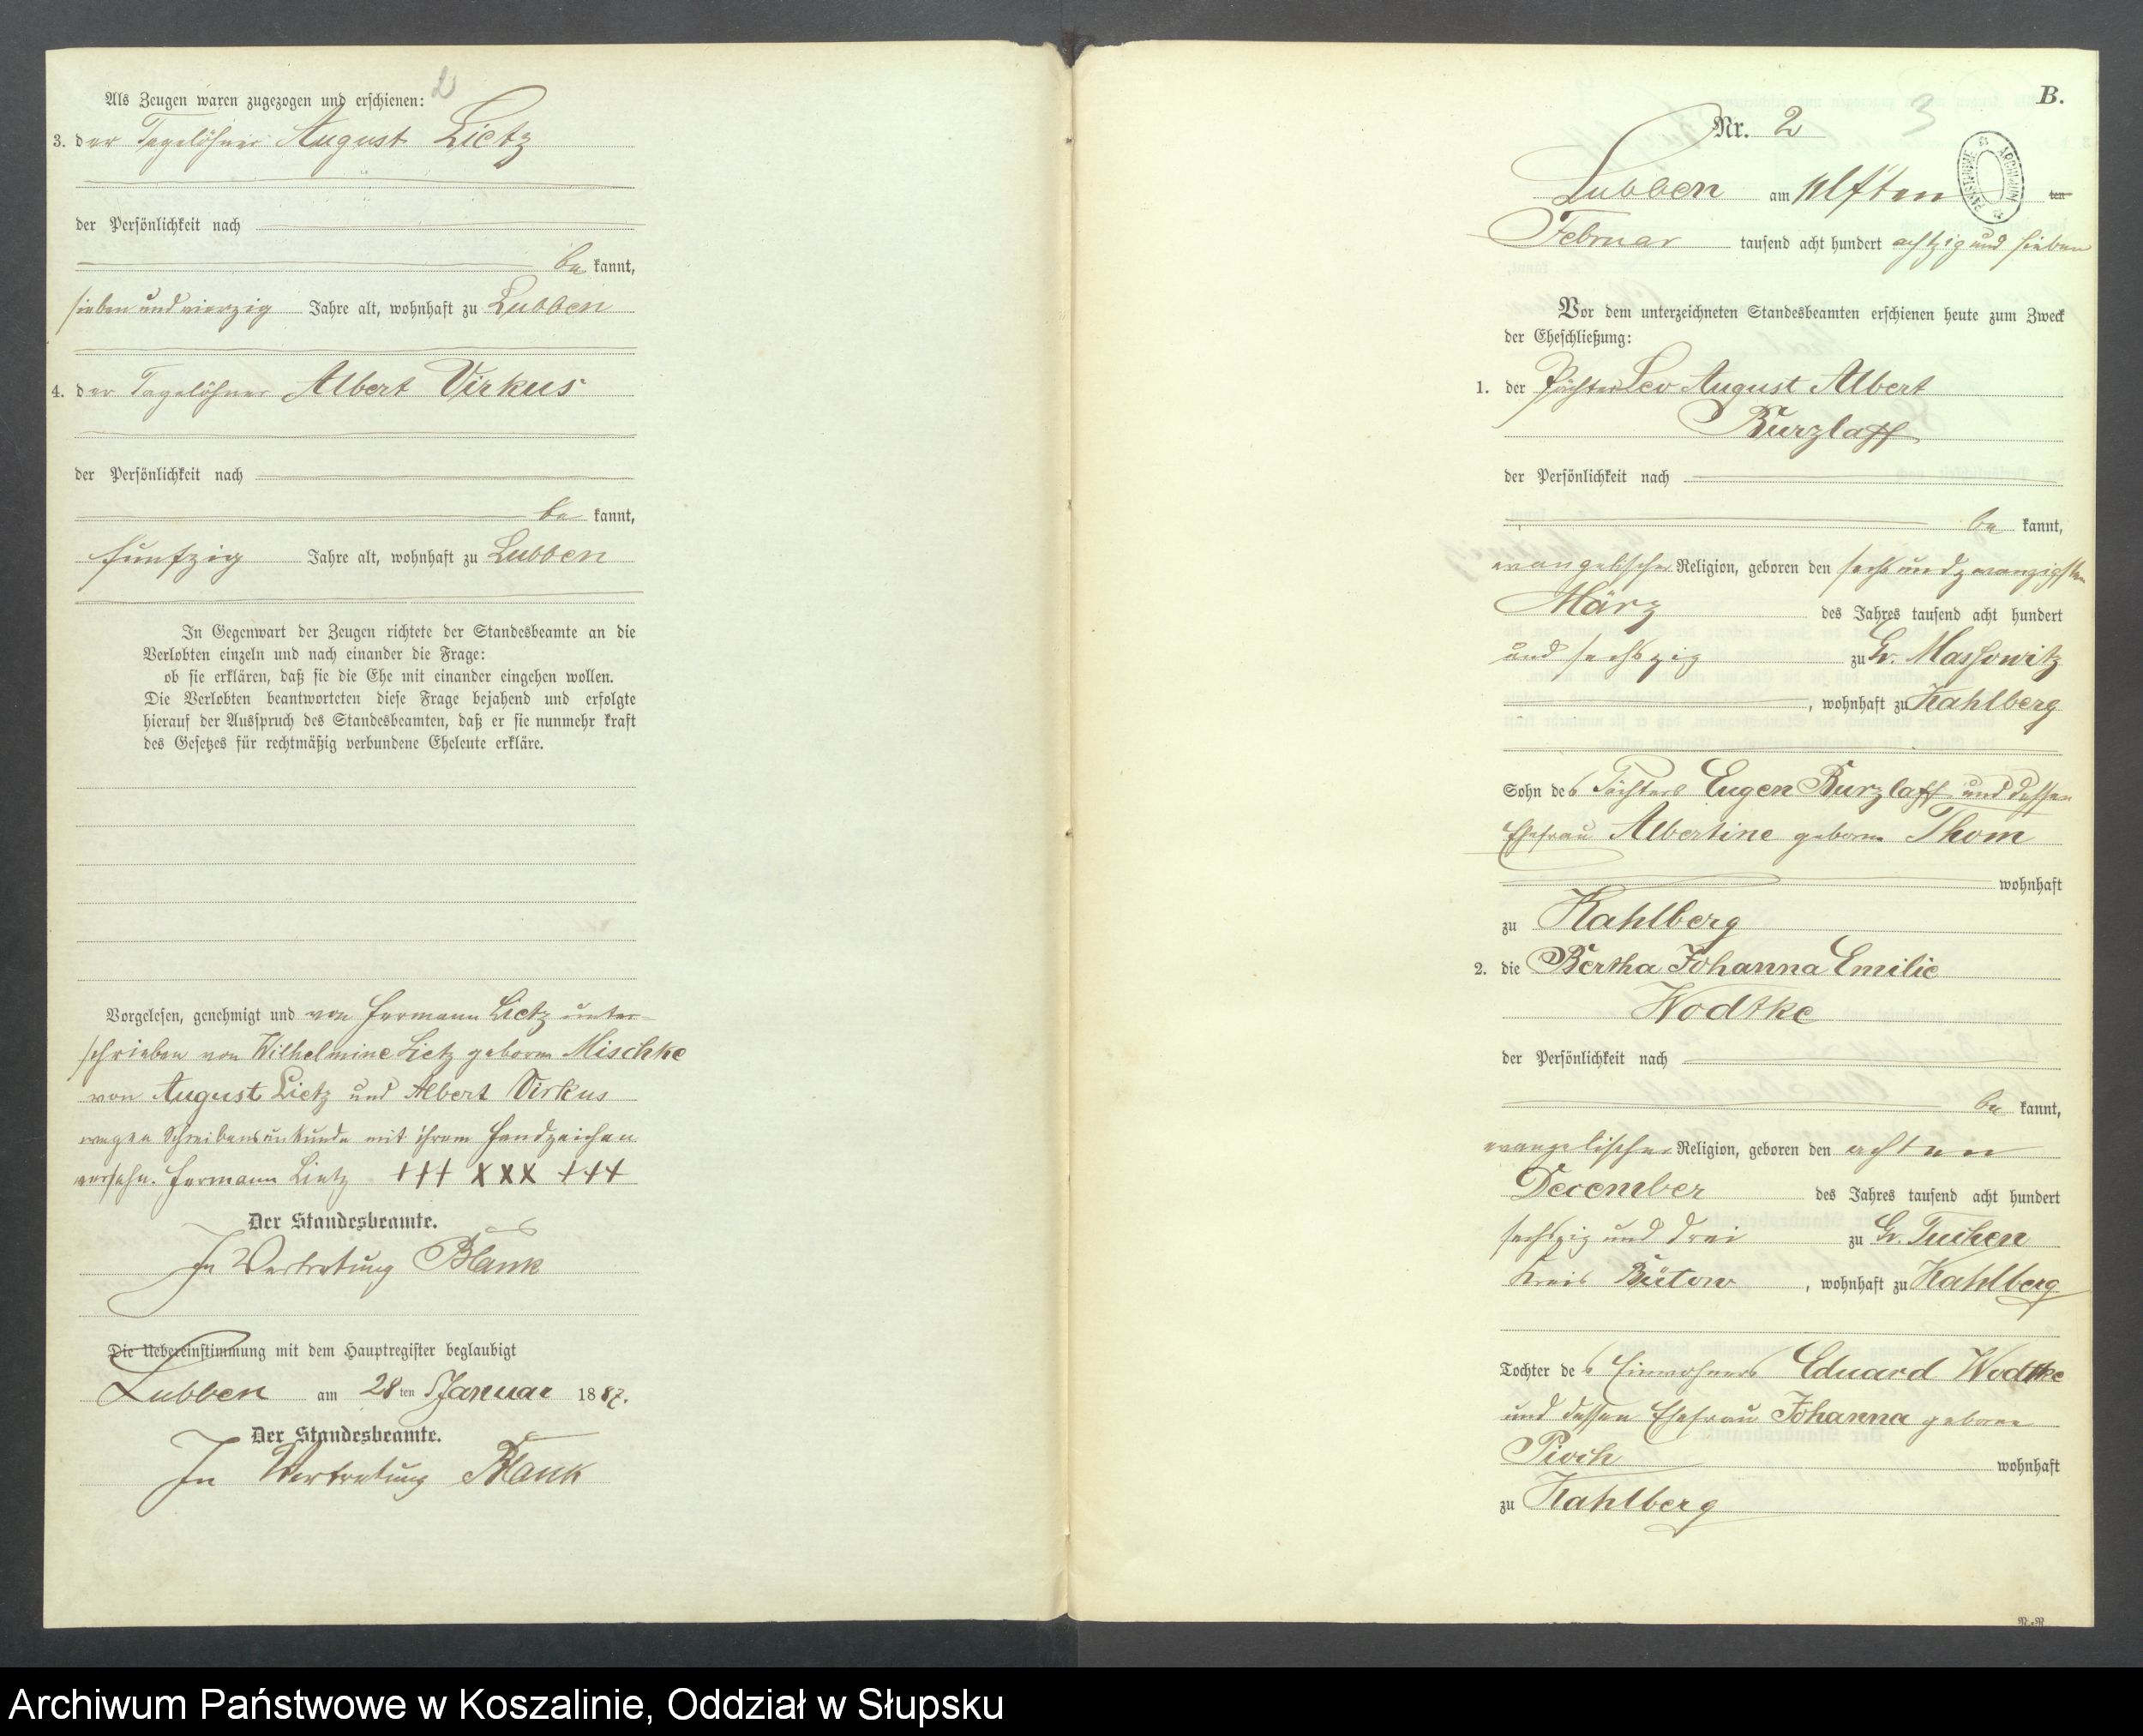 2
Als Zeugen waren zugezogen und erschienen:
3. der Tagelöhner August Lietz
der Persönlichkeit nach
be kannt,
sieben und vierzig Jahre alt, wohnhaft zu Lubben
4. der Tagelöhner Albert Virkus
der Persönlichkeit nach
be kannt,
fünfzig Jahre alt, wohnhaft zu Lubben
In Gegenwart der Zeugen richtete der Standesbeamte an die
Verlobten einzeln und nach einander die Frage:
ob sie erklären, daß sie die Ehe mit einander eingehen wollen.
Die Verlobten beantworteten diese Frage bejahend und erfolgte
hierauf der Ausspruch des Standesbeamten, daß er sie nunmehr kraft
des Gesetzes für rechtmäßig verbundene Eheleute erkläre.
Vorgelesen, genehmigt und von Hermann Lietz unter-
schrieben von Wilhelmine Lietz geborne Mischke
von August Lietz und Albert Virkus
wegen Schreibensunkunde mit ihrem Handzeichen
versehn. Hermann Lietz +++ XXX +++
Der Standesbeamte.
In Vertretung Blank
Die Uebereinstimmung mit dem Hauptregister beglaubigt
Lubben am 28 ten Januar 1887.
Der Standesbeamte.
In Vertretung Blank
B.
3
Nr. 2
ARCHIWUM PAŃSTWOWE
Lubben am elften ten
Februar tausend acht hundert achtzig und sieben
Vor dem unterzeichneten Standesbeamten erschienen heute zum Zweck
der Eheschließung:
1. der Pächter Leo August Albert
Burzlaff
der Persönlichkeit nach
be kannt,
evangelischer Religion, geboren den sechs und zwanzigsten
März des Jahres tausend acht hundert
und sechszig zu Gr. Massowitz
, wohnhaft zu Kahlberg
Sohn des Pächters Eugen Burzlaff und dessen
Ehefrau Albertine geborne Thom
wohnhaft
zu Kahlberg
2. die Bertha Johanna Emilie
Wodtke
der Persönlichkeit nach
be kannt,
evangelischer Religion, geboren den achten
December des Jahres tausend acht hundert
sechszig und drei zu Gr. Tuchen
Kreis Bütow , wohnhaft zu Kahlberg
Tochter des Einwohners Eduard Wodtke
und dessen Ehefrau Johanna geborne
Pioch wohnhaft
zu Kahlberg
Archiwum Państwowe w Koszalinie, Oddział w Słupsku